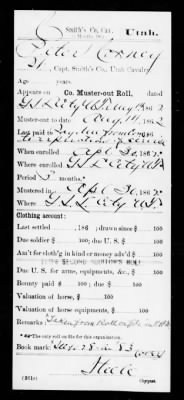 Smith's Co. Cav.
Utah.
(3 Months, 1862.)
Peter Corney
Capt. Smith's Co., Utah Cavalry.
Age years.
Appears on Co. Muster-out Roll, dated
G. S. L. City Utah Aug 14, 1862
Muster-out to date Aug 14, 1862
Last paid to
When enrolled Apl 30, 1862
Where enrolled G S L City U T
Period 3 months.
Mustered in Apl 30, 1862
Where G S L City U T
Clothing account:
Last settled , 186 ; drawn since $ 100
Due soldier $ 100; due U. S. $ 100
Am't for cloth'g in kind or money adv'd $ 100
Due U. S. for arms, equipments, &c., $ 100
Bounty paid $ 100; due $ 100
Valuation of horse, $ 100
Valuation of horse equipments, $ 100
Remarks: Taken from Roll on file in
The only roll on file for this organization.
Book mark:
(361e) Copyist.